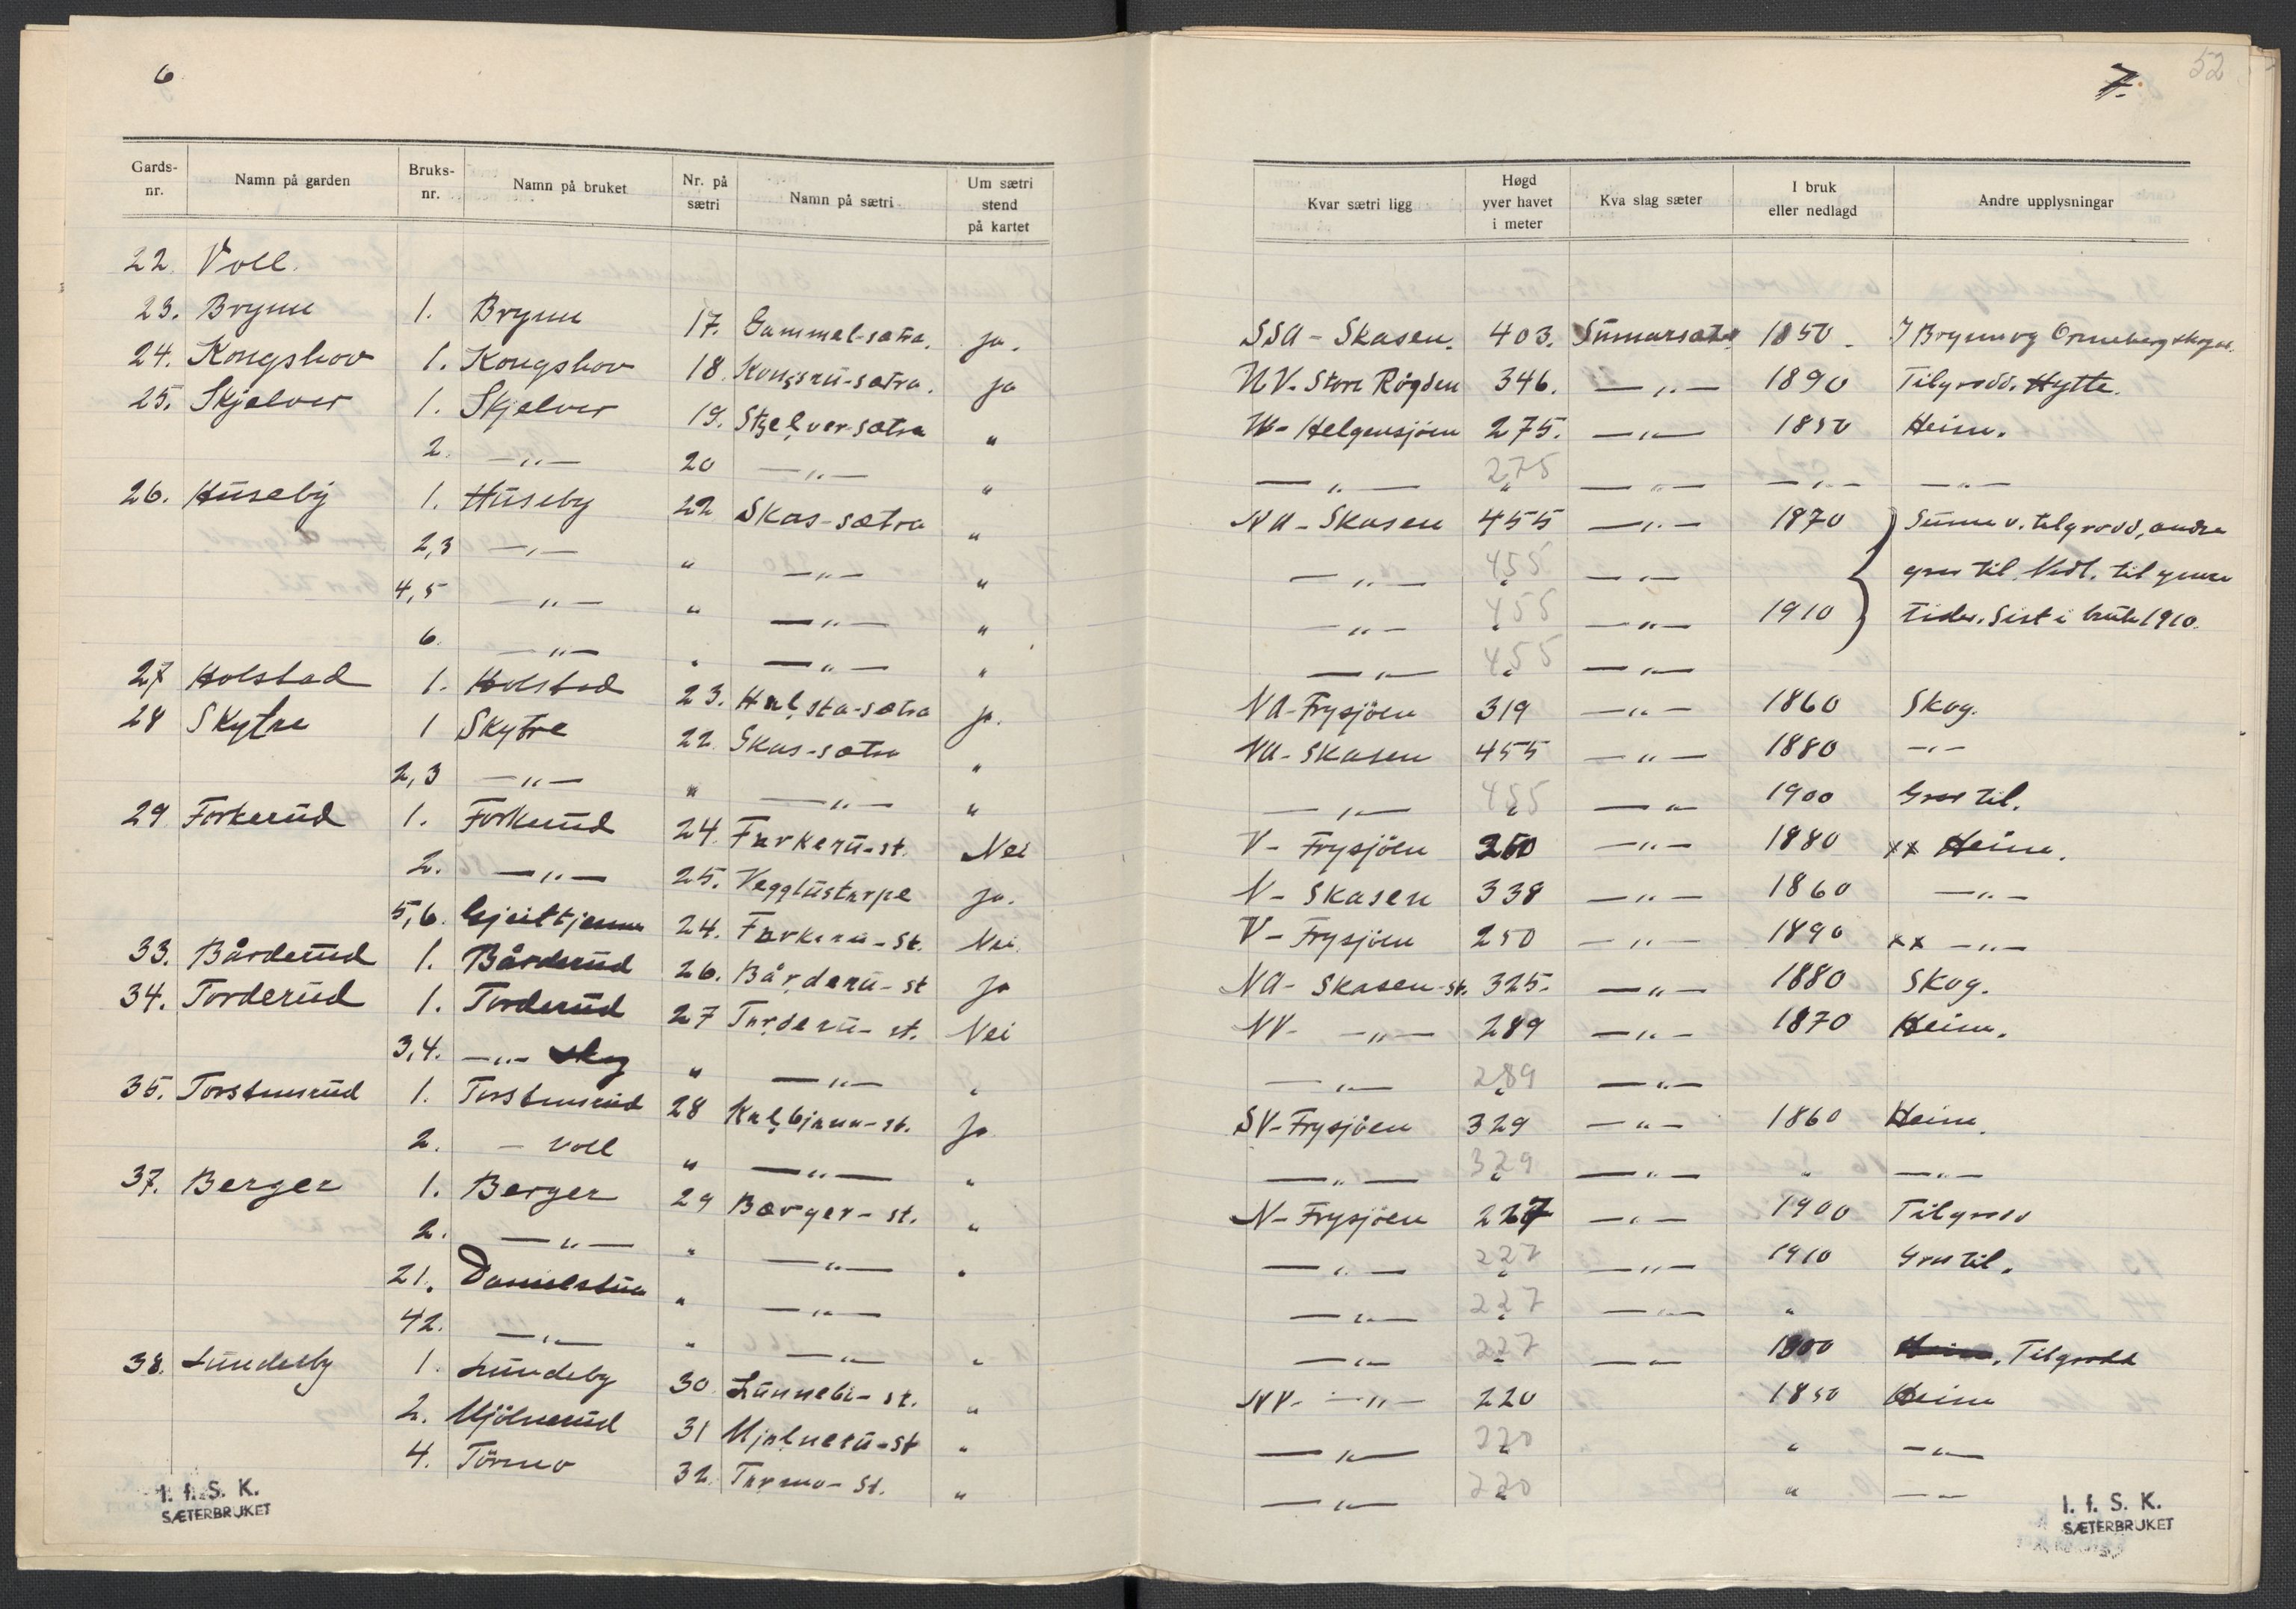 6
Gards-nr. Namn på garden Bruks-nr. Namn på bruket Nr. på sætri Namn på sætri Um sætri stend på kartet
22. Voll.
23. Brynn 1. Brynn 17. Gammel-sætra. ja.
24. Kongshov 1. Kongshov 18. Kongsrü-sætra. ja
25. Skjelver 1. Skjelver 19. Stjelver-sætra "
2. —„— 20 —„— "
26. Hüseby 1. Hüseby 22 Skas-sætra "
2,3 —„— " —„— "
4,5 —„— " —„— "
6. —„— " —„— "
27 Holstad 1. Holstad 23. Halsta-sætra ja.
28 Skytre 1 Skytre 22. Skas-sætra "
2,3 —„— " —„— "
29 Forkerüd 1. Forkerüd 24. Farkerü-st. Nei
2. —„— 25. Vegglüstarpe ja.
5,6. Gjeittjenn 24. Farkerü-st. Nei.
33. Bårderüd 1. Bårderüd 26. Bårderü-st ja
34. Torderüd 1. Torderüd 27 Tarderü-st. Nei
3,4. —„— skog " —„— "
35. Torstensrüd 1. Torstensrüd 28 Kalbjənn-st. ja
2. — voll " —„— "
37. Berger 1. Berger 29 Bærger-st. "
2. —„— " —„— "
21. Danielstua " —„— "
42. —„— " —„— "
38. Lündeby 1. Lündeby 30 Lünnebi-st. "
2. Mjölnerüd 31 Mjalnerü-st "
4. Törmo 32. Tarmo-st. "
I. f. S. K.
SÆTERBRUKET
7. 52
Kvar sætri ligg Høgd yver havet i meter Kva slag sæter I bruk eller nedlagd Andre upplysningar
SSA - Skasen. 403. Sümarsæter 1850. I Brynn og
NV. Store Røgden 346. —„— 1890 Tilgrodd. Hytte.
Helgensjöen 275. —„— 1850 Heim.
—„— 275 —„— —„— —„—
NA - Skasen 455 —„— 1870 Sume v. tilgrodd, andre
—„— 455 —„— gror til. Nedl. til ymse
—„— 455 —„— 1910 tider. Sist i bruk 1910.
—„— 455 —„—
NA-Frysjöen 319 —„— 1860 Skog.
NA-Skasen 455 —„— 1880 —„—
—„— 455 —„— 1900 Gror til.
V- Frysjöen 250 —„— 1880 xx Heim.
N- Skasen 338 —„— 1860 —„—
V- Frysjöen 250 —„— 1890 xx —„—
NA- Skasen-st. 325. —„— 1880 Skog.
NV- —„— 289 —„— 1870 Heim.
—„— 289 —„—
SV-Frysjöen 329 —„— 1860 Heim.
—„— 329 —„— " —„—
N-Frysjöen 227 —„— 1900 Tilgrodd
—„— 227 —„— 1910 Gror til.
—„— 227 —„— "
—„— 227 —„— 1900 Heim. Tilgrodd
NV- —„— 220 1850 Heim
—„— 220 " —„—
—„— 220 " — —
I. f. S. K.
SÆTERBRUKET